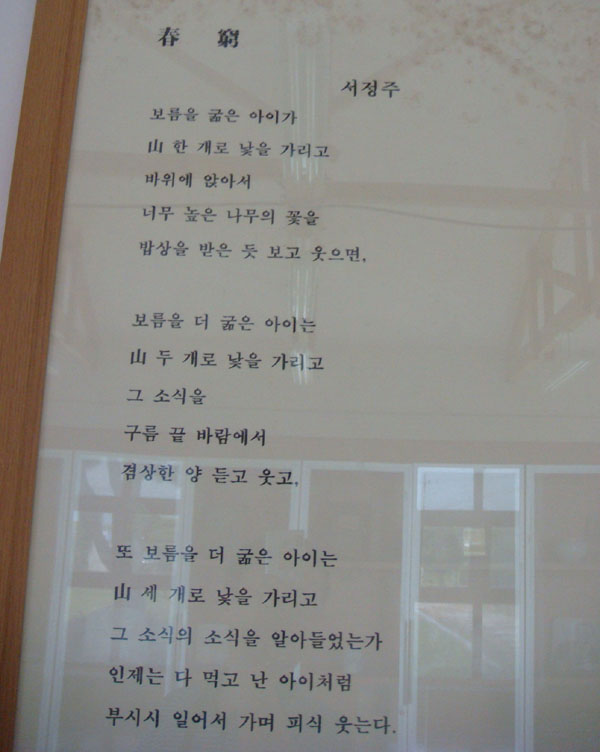 春 窮
서정주
보름을 굶은 아이가
山 한 개로 낯을 가리고
바위에 앉아서
너무 높은 나무의 꽃을
밥상을 받은 듯 보고 웃으면,
보름을 더 굶은 아이는
山 두 개로 낯을 가리고
그 소식을
구름 끝 바람에서
겸상한 양 듣고 웃고,
또 보름을 더 굶은 아이는
山 세 개로 낯을 가리고
그 소식의 소식을 알아들었는가
인제는 다 먹고 난 아이처럼
부시시 일어서 가며 피식 웃는다.